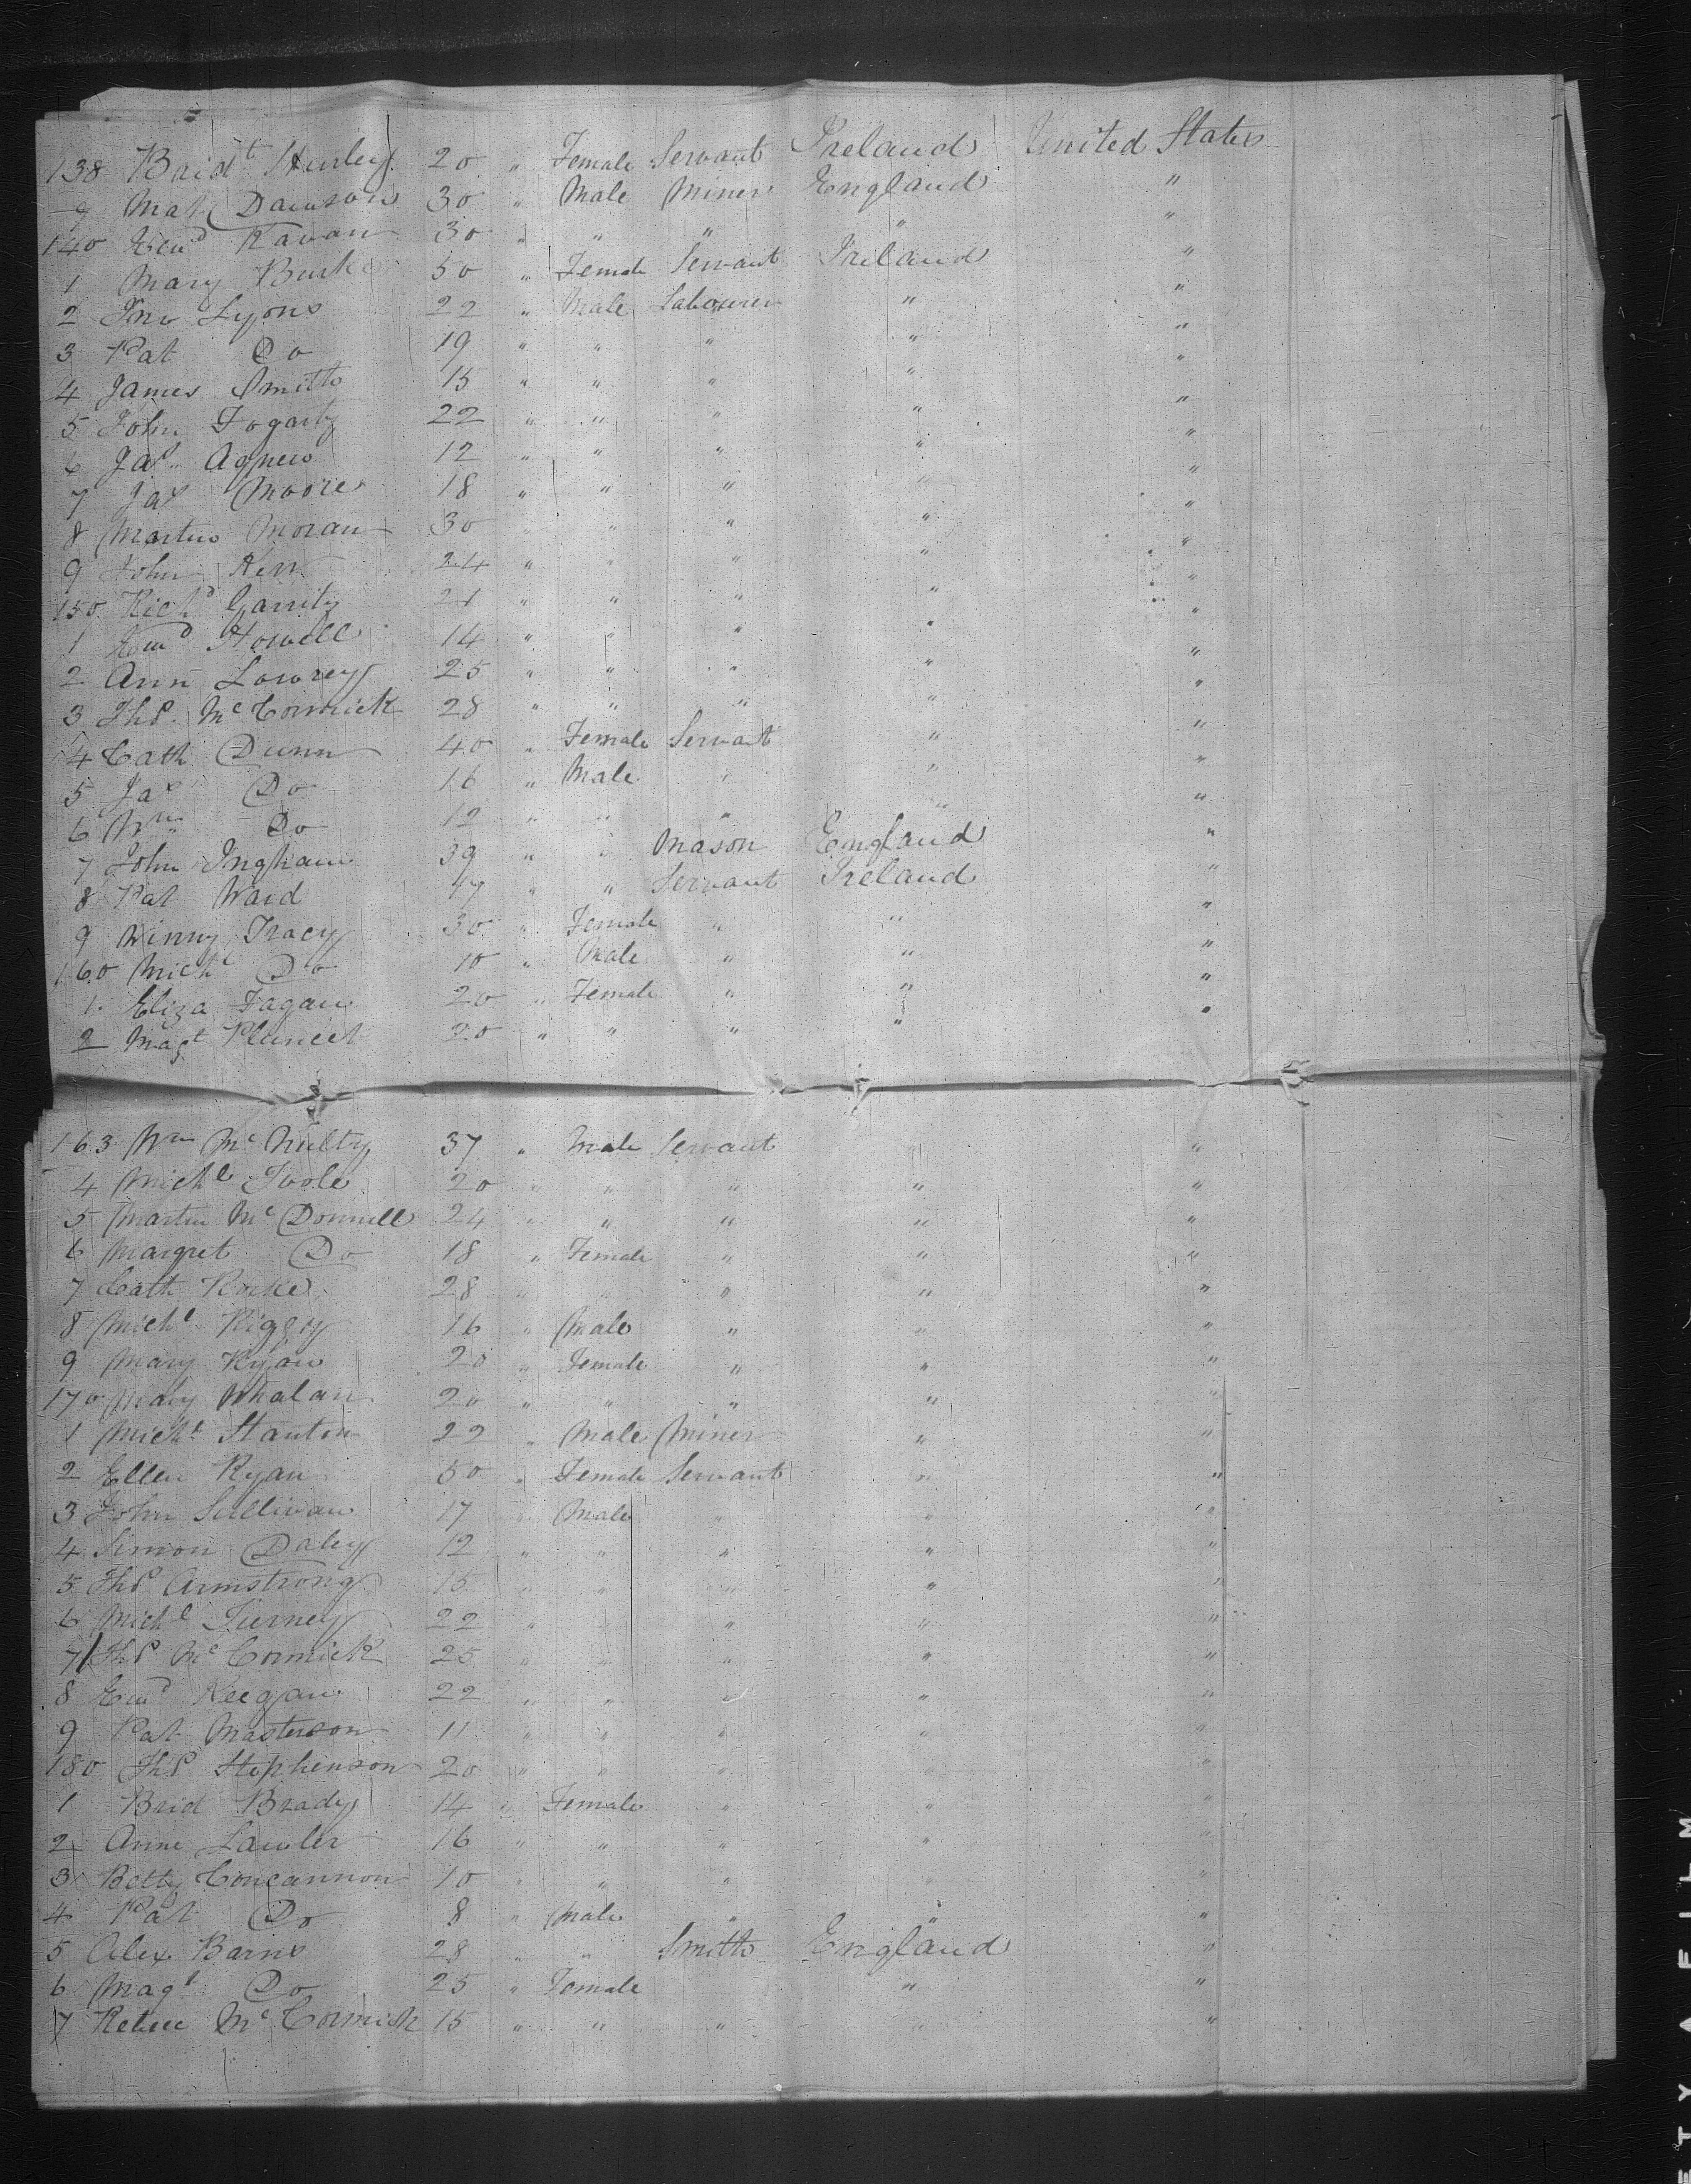 138 Bridt Hurley 20 " Female Servant Ireland United States
9 Mat Dawson 30 " Male Miner England "
140 Edwd Kavan 30 " " " " "
1 Mary Burke 50 " Female Servant Ireland "
2 Jno Lyons 22 " Male Labourer " "
3 Pat Do 19 " " " " "
4 James Smith 15 " " " " "
5 John Fogarty 22 " " " " "
6 Jas Agnew 12 " " " " "
7 Jas Moore 18 " " " " "
8 Martin Moran 30 " " " " "
9 John Kerr 24 " " " " "
150 Richd Garrity 21 " " " " "
1 Edwd Howell 14 " " " " "
2 Ann Lowrey 25 " " " " "
3 Ths McCormick 28 " " " " "
4 Cath Dunn 40 " Female Servant " "
5 Jas Do 16 " Male " " "
6 Wm Do 12 " " " " "
7 John Ingham 39 " " Mason England "
8 Pat Ward 17 " " Servant Ireland "
9 Winny Tracy 30 " Female " " "
160 Michl Do 10 " Male " " "
1 Eliza Fagan 20 " Female " " "
2 Magt 30 " " " " "
163 Wm McNulty 37 " Male Servant "
4 Michl Toole 20 " " " " "
5 Martin McDonnell 24 " " " " "
6 Margret Do 18 " Female " " "
7 Cath Rorke 28 " " " " "
8 Michl Riggy 16 " Male " " "
9 Mary Ryan 20 " Female " " "
170 Mary Whalan 20 " " " " "
1 Michl Stanton 22 " Male Miner " "
2 Ellen Ryan 50 " Female Servant " "
3 John Sullivan 17 " Male " " "
4 Simon Daley 12 " " " " "
5 Ths Armstrong 15 " " " " "
6 Michl Turney 22 " " " " "
7 Ths McCormick 25 " " " " "
8 Edwd Keegan 22 " " " " "
9 Pat Masterson 11 " " " " "
180 Ths Stephenson 20 " " " " "
1 Brid Brady 14 " Female " " "
2 Anne Lawler 16 " " " " "
3 Betty Concannon 10 " " " " "
4 Pat Do 8 " Male " " "
5 Alex Barns 28 " " Smith England "
6 Magt Do 25 " Female " "
7 McCormick 15 " " " " "